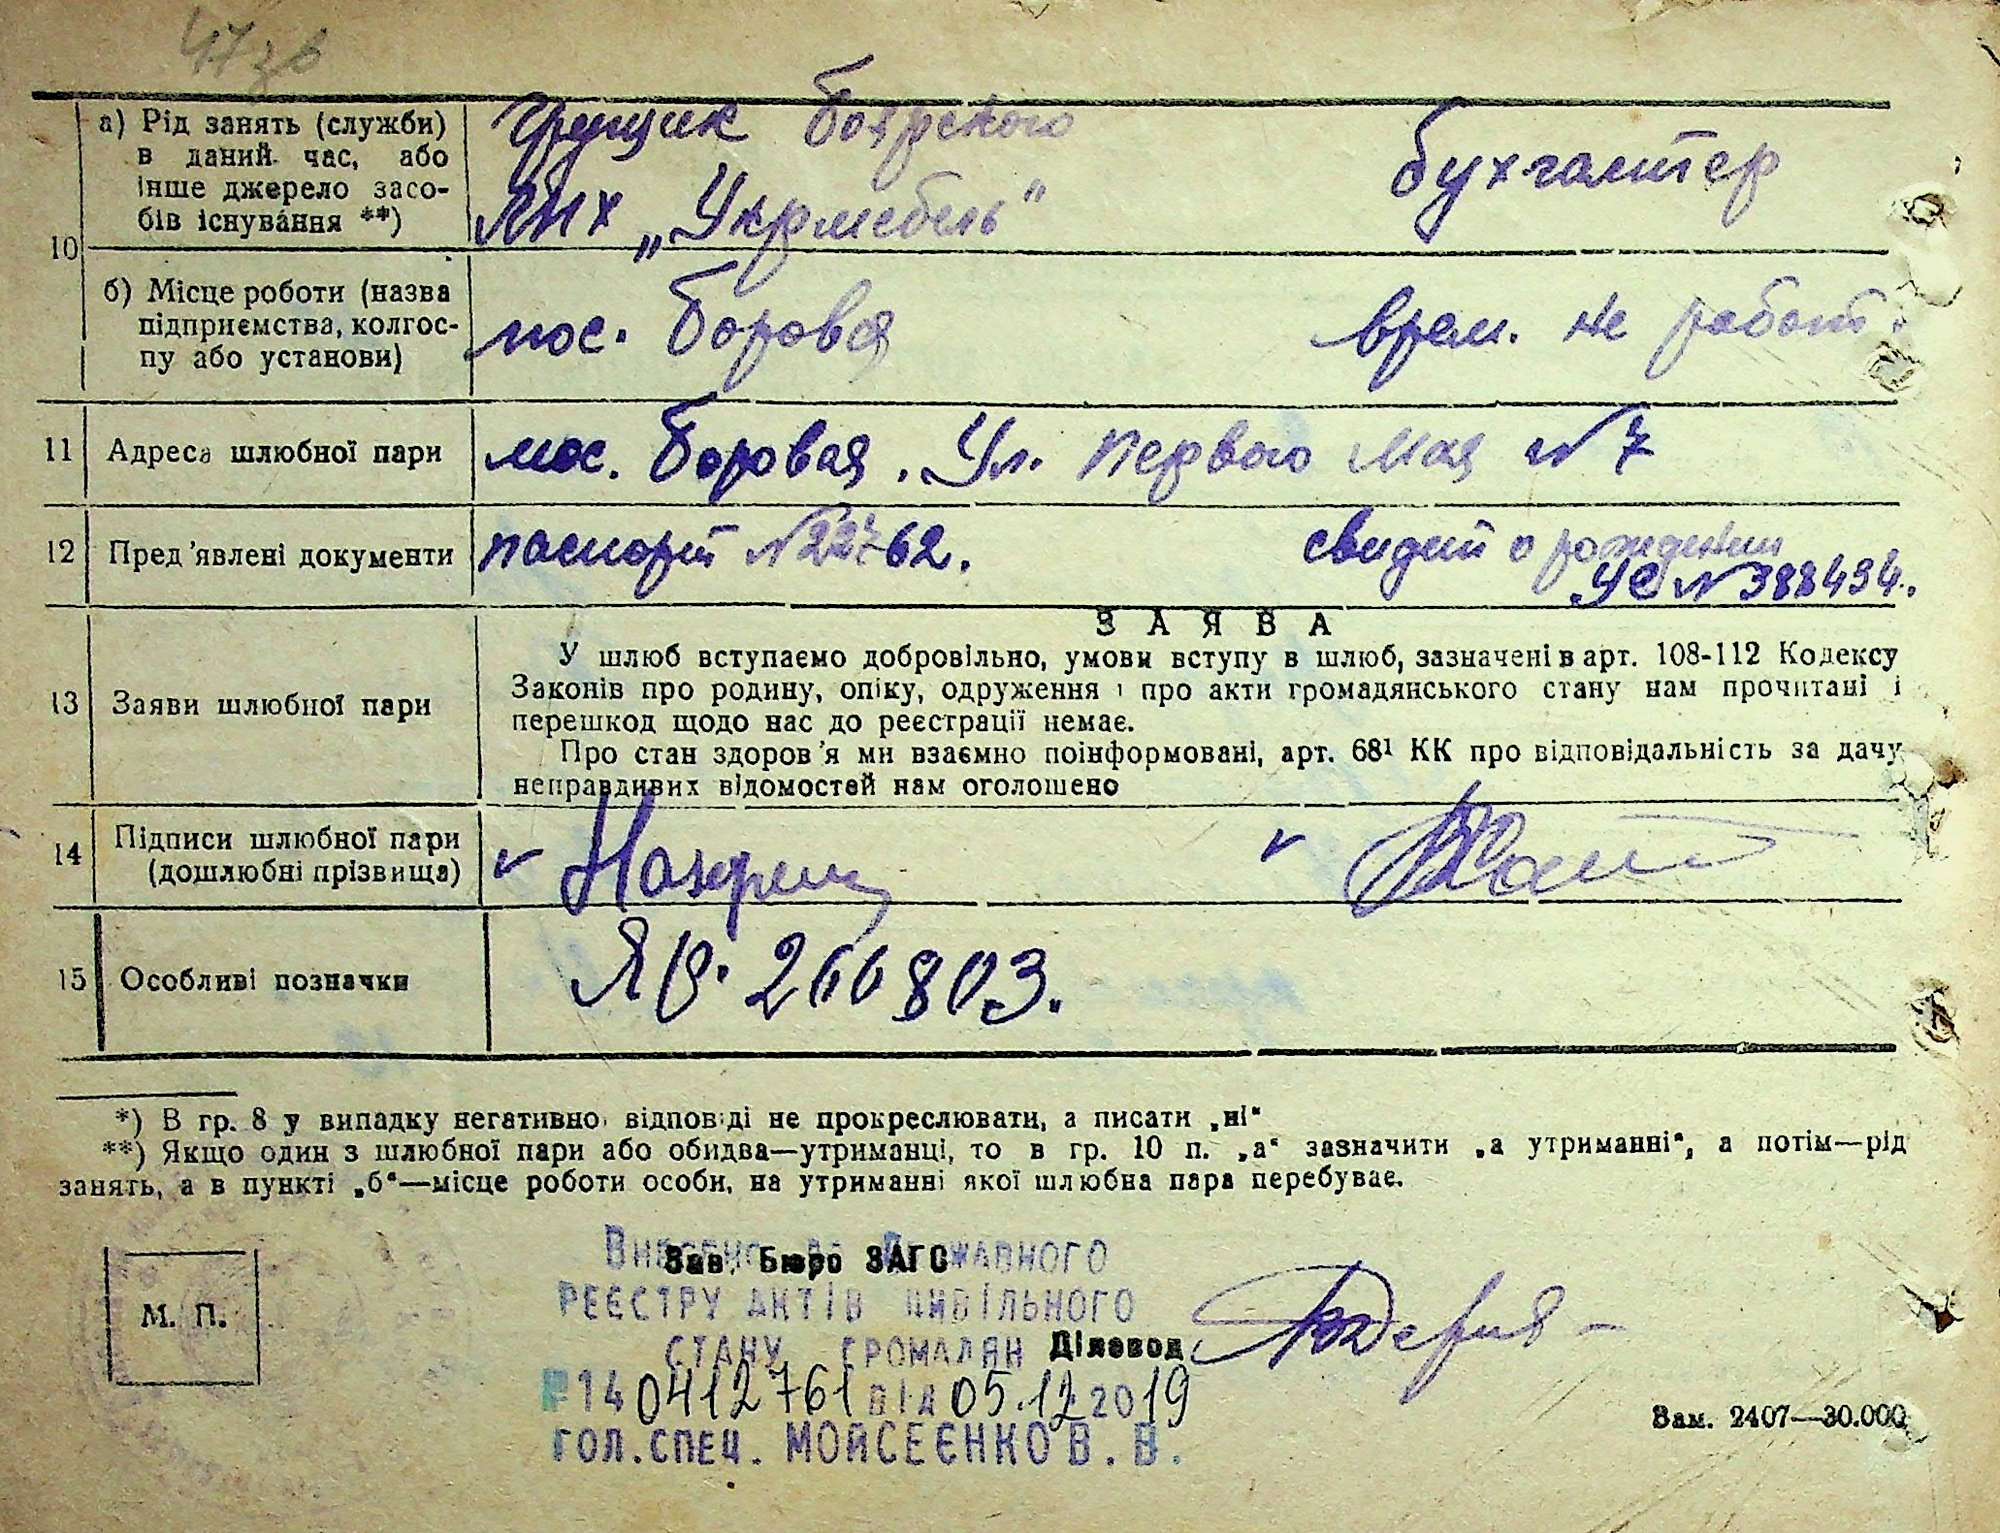 47 зв
10
а) Рід занять (служби)
в даний час, або
інше джерело засо-
бів існування **)
Боярского
„Укрмебель"
бухгалтер
б) Місце роботи (назва
підприємства, колгос-
пу або установи)
пос. Боровая
врем. не работ.
11 Адреса шлюбної пари
пос. Боровая. Ул. Первого Мая № 7
12 Пред'явлені документи
паспорт № 22762.
свидет о рождении
УС № 388434.
13 Заяви шлюбної пари
ЗАЯВА
У шлюб вступаємо добровільно, умови вступу в шлюб, зазначені в арт. 108-112 Кодексу
Законів про родину, опіку, одруження і про акти громадянського стану нам прочитані і
перешкод щодо нас до реєстрації немає.
Про стан здоров'я ми взаємно поінформовані, арт. 68¹ КК про відповідальність за дачу
неправдивих відомостей нам оголошено
14 Підписи шлюбної пари
(дошлюбні прізвища)
15 Особливі позначки
ЯВ. 266803.
*) В гр. 8 у випадку негативної відповіді не прокреслювати, а писати „ні“
**) Якщо один з шлюбної пари або обидва—утриманці, то в гр. 10 п. „а“ зазначити „а утриманні“, а потім—рід
занять, а в пункті „б“—місце роботи особи, на утриманні якої шлюбна пара перебуває.
М. П.
Зав. Бюро ЗАГС
Внесено до Державного
реєстру актів цивільного
стану громадян
Діловод
№140412761 від 05.12.2019
гол.спец. Мойсеєнко В.В.
Зам. 2407—30.000